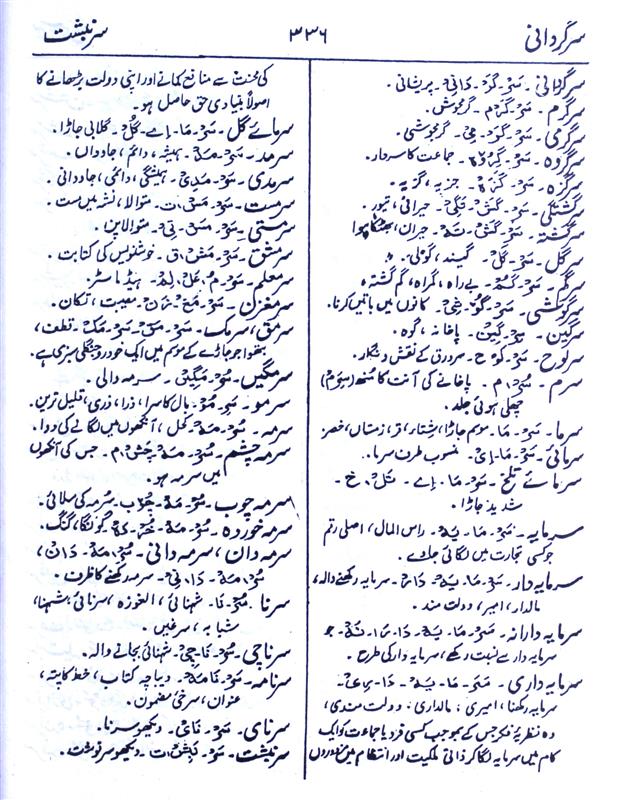 سرگردانی
۳۳۶
سرنبشت
سرگردانی - سَرْ - گَرْ - دَانِیْ - پریشانی -
سرگرم - سَرْ - گَرْم - گرمجوش -
سرگرمی - سَرْ - گَرْ - مِیْ - گرمجوشی -
سرگروہ - سَرْ - گُرُوْہ - جماعت کا سردار -
سرگزہ - سَرْ - - جزیہ، گزیہ -
سرگشتگی - سَرْ - گَشْ - تَگِیْ - حیرانی،
سرگشتہ - سَرْ - گَشْ - تَہْ - حیران، بھٹکا ہوا
سرگل - سَرْ - گُلْ - گیند، گولی -
سرگم - سَرْ - گُمْ - بے راہ، گمراہ، گم گشتہ،
سرگوشی - سَرْ - گُوْ - شِیْ - کانوں میں باتیں کرنا -
سرگین - سِرْ - گِیْن - پاخانہ، گوہ -
سرلوح - سَرْ - لَوْح - سرورق کے نقش و نگار -
سرم - سُرْم - پاخانے کی آنت کا منھ (سِوُم)
چھلی ہوئی جلد -
سرما - سَرْ - مَا - موسم جاڑا، شتاء، قر، زمستاں، خصر
سرمائی - سَرْ - مَا - اِیْ - منسوب طرف سرما -
سرمائے تلخ - سَرْ - مَا - اِے - تَلْخ -
شدید جاڑا -
سرمایہ - سَرْ - مَا - یَہْ - راس المال، اصلی رقم
جو کسی تجارت میں لگائی جاوے -
سرمایہ دار - سَرْ - مَا - یَہْ - دَار - سرمایہ رکھنے والا،
مالدار، امیر، دولت مند -
سرمایہ دارانہ - سَرْ - مَا - یَہْ - دَا - رَا - نَہْ - جو
سرمایہ دار سے نسبت رکھے، سرمایہ دار کی طرح -
سرمایہ داری - سَرْ - مَا - یَہْ - دَا - رِیْ -
سرمایہ رکھنا، امیری، مالداری، دولت مندی،
وہ نظریۂ فکر جس کے بموجب کسی فرد یا جماعت کو ایک
کام میں سرمایہ لگا کر ذاتی ملکیت اور انتظام میں مزدوروں
کی محنت سے منافع کمانے اور اپنی دولت بڑھانے کا
اصولاً بنیادی حق حاصل ہو -
سرمائے گل - سَرْ - مَا - اِے - گُلْ - گلابی جاڑا -
سرمد - سَرْ - مَدْ - ہمیشہ، دائم، جاوداں -
سرمدی - سَرْ - مَدِیْ - ہمیشگی، دائمی، جاودانی -
سرمست - سَرْ - مَسْت - متوالا، نشہ میں مست -
سرمستی - سَرْ - مَسْ - تِیْ - متوالاپن -
سرمشق - سَرْ - مَشْق - خوشنویس کی کتابت -
سرمعلم - سَرْ - مُ - عَلْ - لِمْ - ہیڈ ماسٹر -
سرمغزن - سَرْ - مَغْ - زَن - مصیبت، تکان -
سرمق، سرمک - سَرْ - مَقْ - سَرْ - مَکْ - قطف،
بتھوا جو جاڑے کے موسم میں ایک خودرو جنگلی سبزی ہے -
سرمگیں - سُرْ - مَگِیْں - سرمہ والی -
سرمو - سَرِ - مُوْ - بال کا سرا، ذرا، ذری، قلیل ترین -
سرمہ - سُرْ - مَہْ - کحل، آنکھوں میں لگانے کی دوا -
سرمہ چشم - سُرْ - مَہْ - چَشْم - جس کی آنکھوں
میں سرمہ ہو -
سرمہ چوب - سُرْ - مَہْ - چُوْب - سُرمہ کی سلائی -
سرمہ خوردہ - سُرْ - مَہْ - خُرْ - دَہْ - گونگا، گنگ -
سرمہ دان، سرمہ دانی - سُرْ - مَہْ - دَان،
سُرْ - مَہْ - دَا - نِیْ - سرمہ رکھنے کا ظرف -
سرنا - سُرْ - نَا - شہنائی، الغوزہ، سرنائی، شہنا،
شبابہ، سرغیں -
سرناچی - سُرْ - نَا - چِیْ - شہنائی بجانے والا -
سرنامہ - سَرْ - نَامَہْ - دیباچہ کتاب، خط کا پتہ،
عنوان، سرخی مضمون -
سرنای - سُرْ - نَایْ - دیکھو سرنا -
سرنبشت - سَرْ - نَبِشْت - دیکھو سرنوشت -